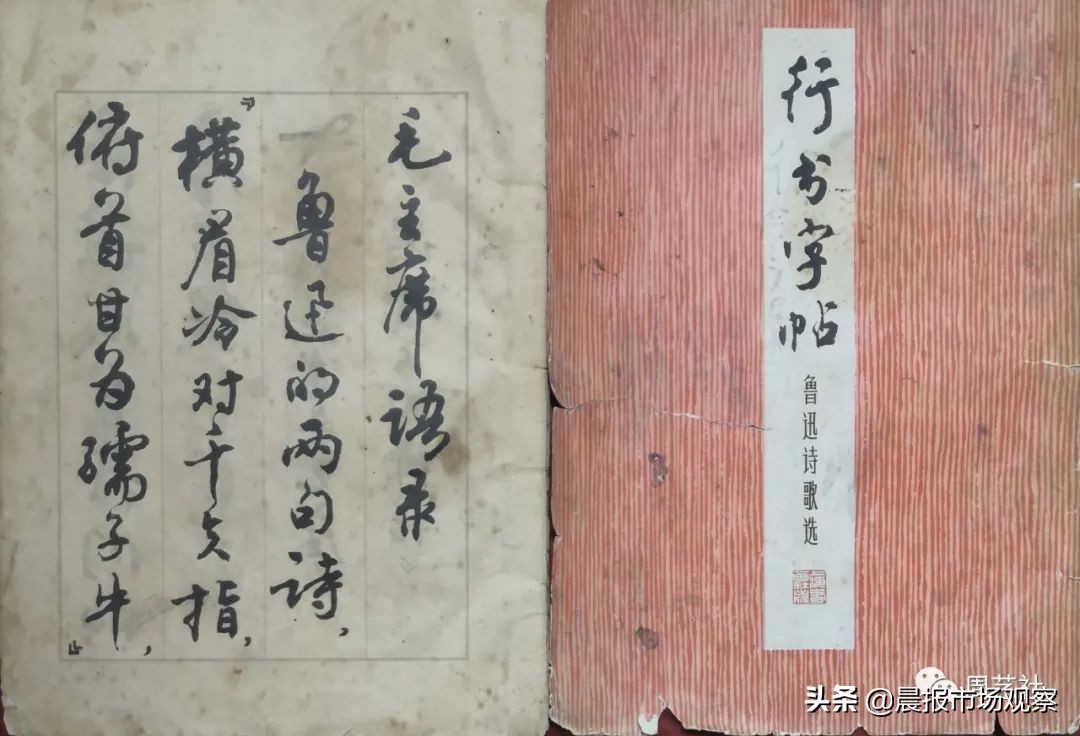 毛主席语录
鲁迅的两句诗，
『横眉冷对千夫指，
俯首甘为孺子牛，』
行书字帖
鲁迅诗歌选
周艺社
头条 @晨报市场观察